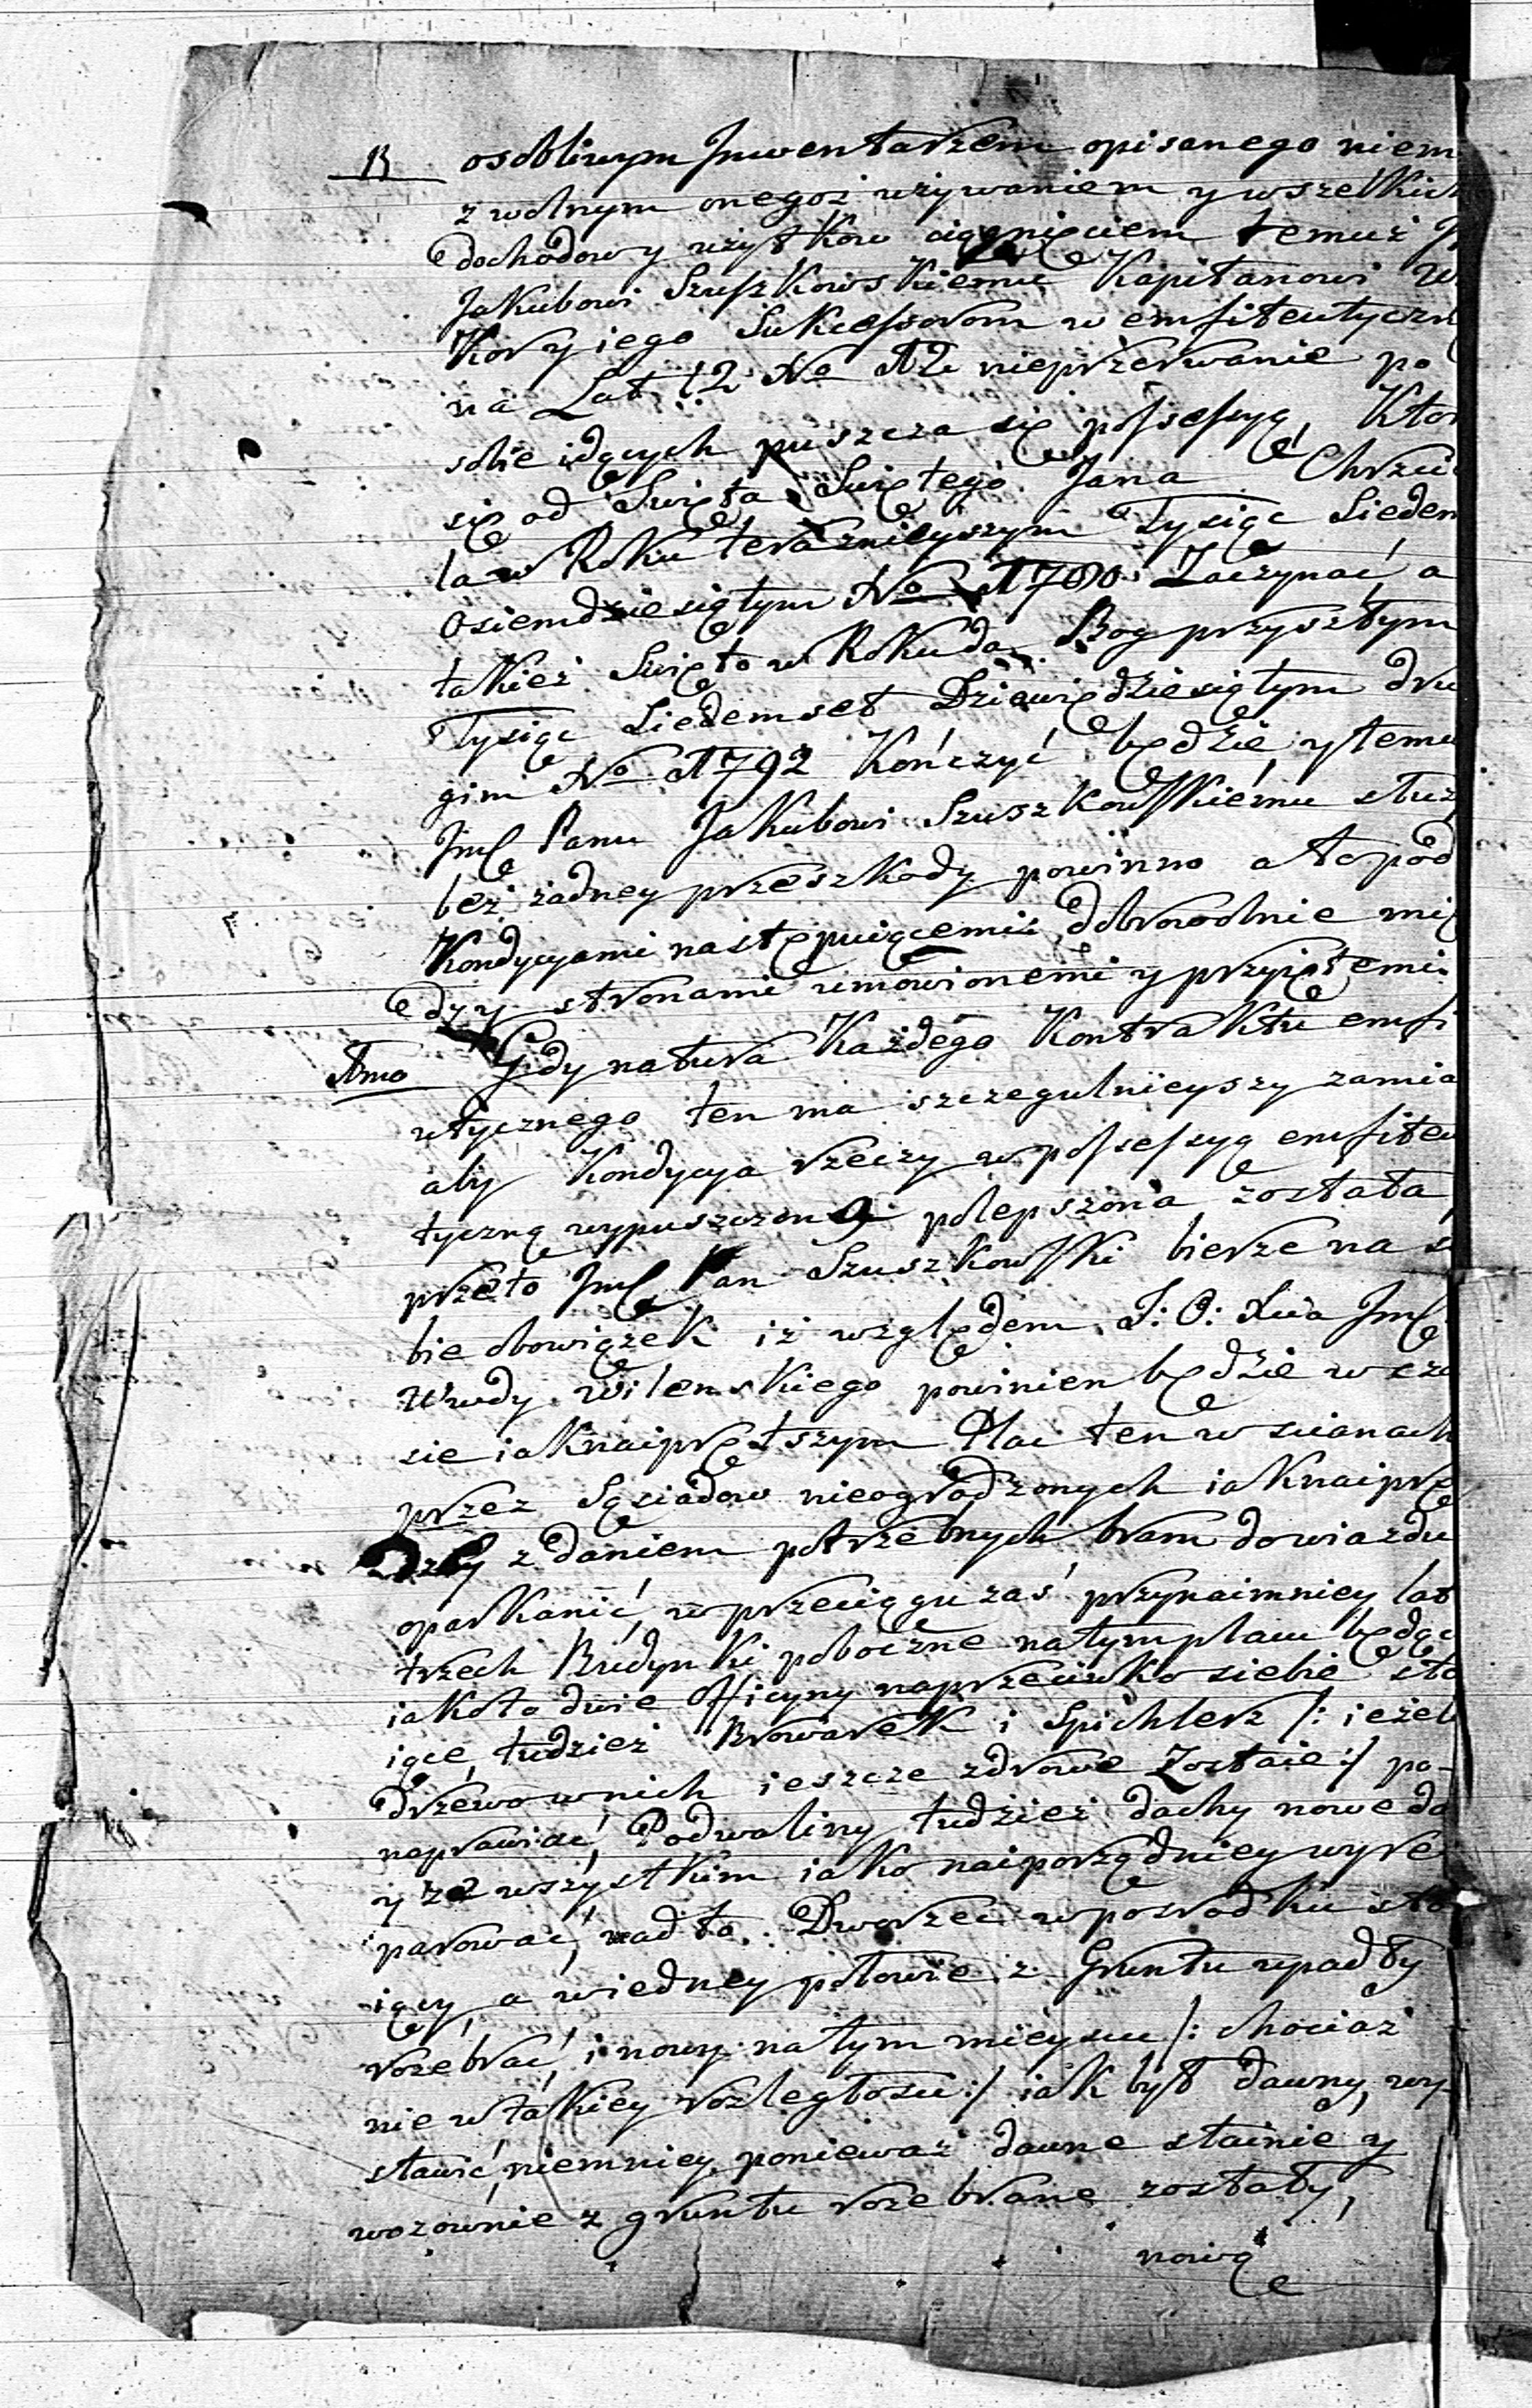 B osobliwym Jnwentarzem opisanego niem
z wolnym onegoż używaniem y wszelkich
dochodow y użytkow ciągnięciem temuż
Jakubowi Szuszkowskiemu Kapitanowi W
Kor y iego Sukcessorom w emfiteutyczn
na Lat 12 No 12 nieprzerwanie po
sobie idących puszcza się possessyą, Ktor
się od Swięta Swiętego Jana Chrzci
la w Roku teraznieyszym Tysiąc Siedem
Osiemdziesiątym No 1780 Zaczynać, a
takież Swięto w Roku da Bog przyszłym
Tysiąc Siedemset Dziewiędziesiątym dru
gim No 1792 Kończyć będzie, y temu
Jmę Panu Jakubowi Szuszkowskiemu służ
bez żadney przeszkody powinno a to pod
Kondycyami następuiącemi, dobrowolnie mię
dzy stronami umowionemi y przyiętemi.
1mo Gdy natura Każdego Kontraktu emfi
utycznego ten ma szczegulnieyszy zamia
aby Kondycya rzeczy w possessyą emfiteu
tyczną wypuszczoney polepszona została,
przeto Jmę Pan Szuszkowski bierze na s
bie obowiązek iż względem J: O: Xcia Jmę
Wwdy Wilenskiego powinien będzie w cza
sie iaknaiprętszym Plac ten w scianach
przez Sąsiadow nieogrodzonych iaknaiprę
dzey z daniem potrzebnych bram do wiazdu
oparkanić, w przeciągu zaś przynaimniey lat
trzech Budynki poboczne na tym placu będąc
iako to dwie Officyny naprzeciwko siebie sto
iące, tudzież Browarek i Spichlerz /: ieżeli
drzewo w nich ieszcze zdrowe Zostaie :/ po-
naprawiać, Podwaliny tudzież dachy nowe da
y ze wszystkim iako naiporządniey wyre
parować, nad to. Dworzec w posrodku sto
iący, a w iedney połowie z Gruntu upadły
rozebrać, i nowy na tym mieyscu /: chociaż
nie w takiey rozległosci :/ iak był dawny, wy-
stawić, niemniey ponieważ dawne stainie y
wozownie z gruntu rozebrane zostały,
nową